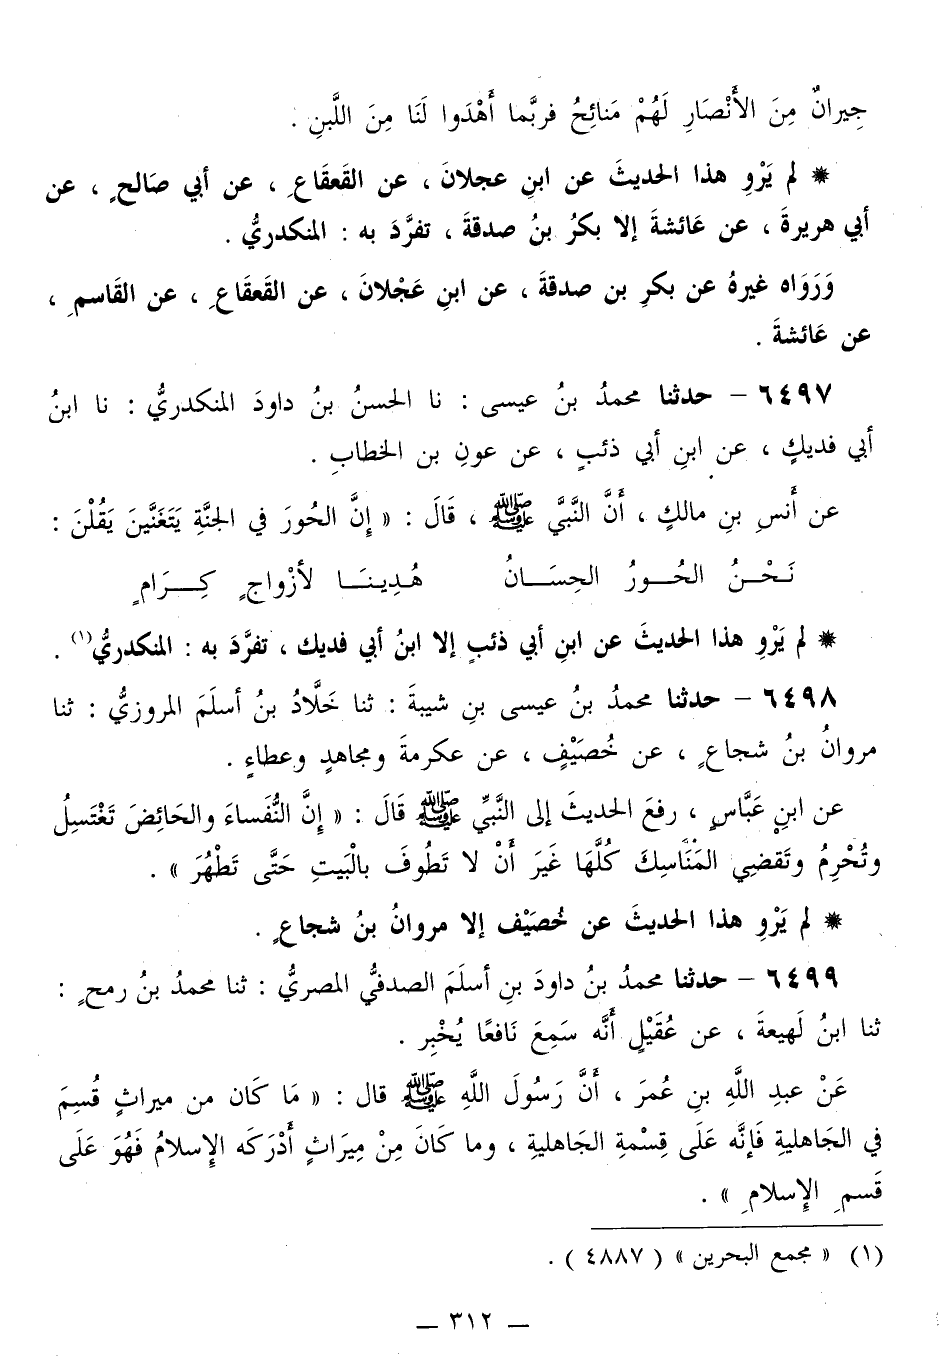 جِيرانٌ مِنَ الأَنْصَارِ لَهُمْ مَنائِحُ فربَّما أَهْدَوا لَنَا مِنَ اللَّبنِ .
* لم يَرْوِ هذا الحديثَ عن ابنِ عجلانَ ، عن القَعقَاعِ ، عن أبي صَالحٍ ، عن
أبي هريرةَ ، عن عَائشةَ إلا بكرُ بنُ صدقةَ ، تفرَّدَ به : المنكدريُّ .
وَرَوَاه غيرهُ عن بكرِ بن صدقةَ ، عن ابنِ عَجْلانَ ، عن القعقَاعِ ، عن القَاسمِ ،
عن عَائشةَ .
٦٤٩٧ – حدثنا محمدُ بنُ عيسى : نا الحسنُ بنُ داودَ المنكدريُّ : نا ابنُ
أبي فديكٍ ، عن ابنِ أبي ذئبٍ ، عن عونِ بن الخطابِ .
عن أَنسِ بنِ مالكٍ ، أَنَّ النَّبيَّ ﷺ ، قَالَ : « إِنَّ الحُورَ في الجنَّةِ يَتَغَنَّينَ يَقُلْنَ :
نَـحْـنُ الحُــورُ الحِسَــانُ هُـدِينَــا لأزْواجٍ كِــرَامٍ
* لم يَرْوِ هذا الحديثَ عن ابنِ أبي ذئبٍ إلا ابنُ أبي فديك ، تفرَّدَ به : المنكدريُّ(١) .
٦٤٩٨ – حدثنا محمدُ بنُ عيسى بنِ شيبةَ : ثنا خَلَّادُ بنُ أسلَمَ المروزيُّ : ثنا
مروانُ بنُ شجاعٍ ، عن خُصَيْفٍ ، عن عكرمةَ ومجاهدٍ وعطاءٍ .
عن ابنِ عَبَّاسٍ ، رفعَ الحديثَ إلى النَّبيِّ ﷺ قَالَ : « إِنَّ النُّفَساءَ والحَائضَ تَغْتَسِلُ
وتُحْرِمُ وتَقضِي المَنَاسِكَ كُلَّهَا غَيرَ أَنْ لا تَطُوفَ بالْبَيتِ حَتَّى تَطْهُرَ » .
* لم يَرْوِ هذا الحديثَ عن خُصَيْف إلا مروانُ بنُ شجاعٍ .
٦٤٩٩ – حدثنا محمدُ بنُ داودَ بنِ أسلَمَ الصدفيُّ المصريُّ : ثنا محمدُ بنُ رمحٍ :
ثنا ابنُ لَهيعةَ ، عن عُقَيْلٍ أَنَّه سَمِعَ نَافعًا يُخْبِر .
عَنْ عبدِ اللَّهِ بنِ عُمرَ ، أَنَّ رَسُولَ اللَّهِ ﷺ قال : « مَا كَان من ميراثٍ قُسِمَ
في الجَاهليةِ فَإنَّه عَلَى قِسْمةِ الجَاهليةِ ، وما كَانَ مِنْ مِيرَاثٍ أَدْرَكَه الإِسلامُ فَهُوَ عَلَى
قَسمِ الإِسلامِ » .
(١) « مجمع البحرين » ( ٤٨٨٧ ) .
– ٣١٢ –